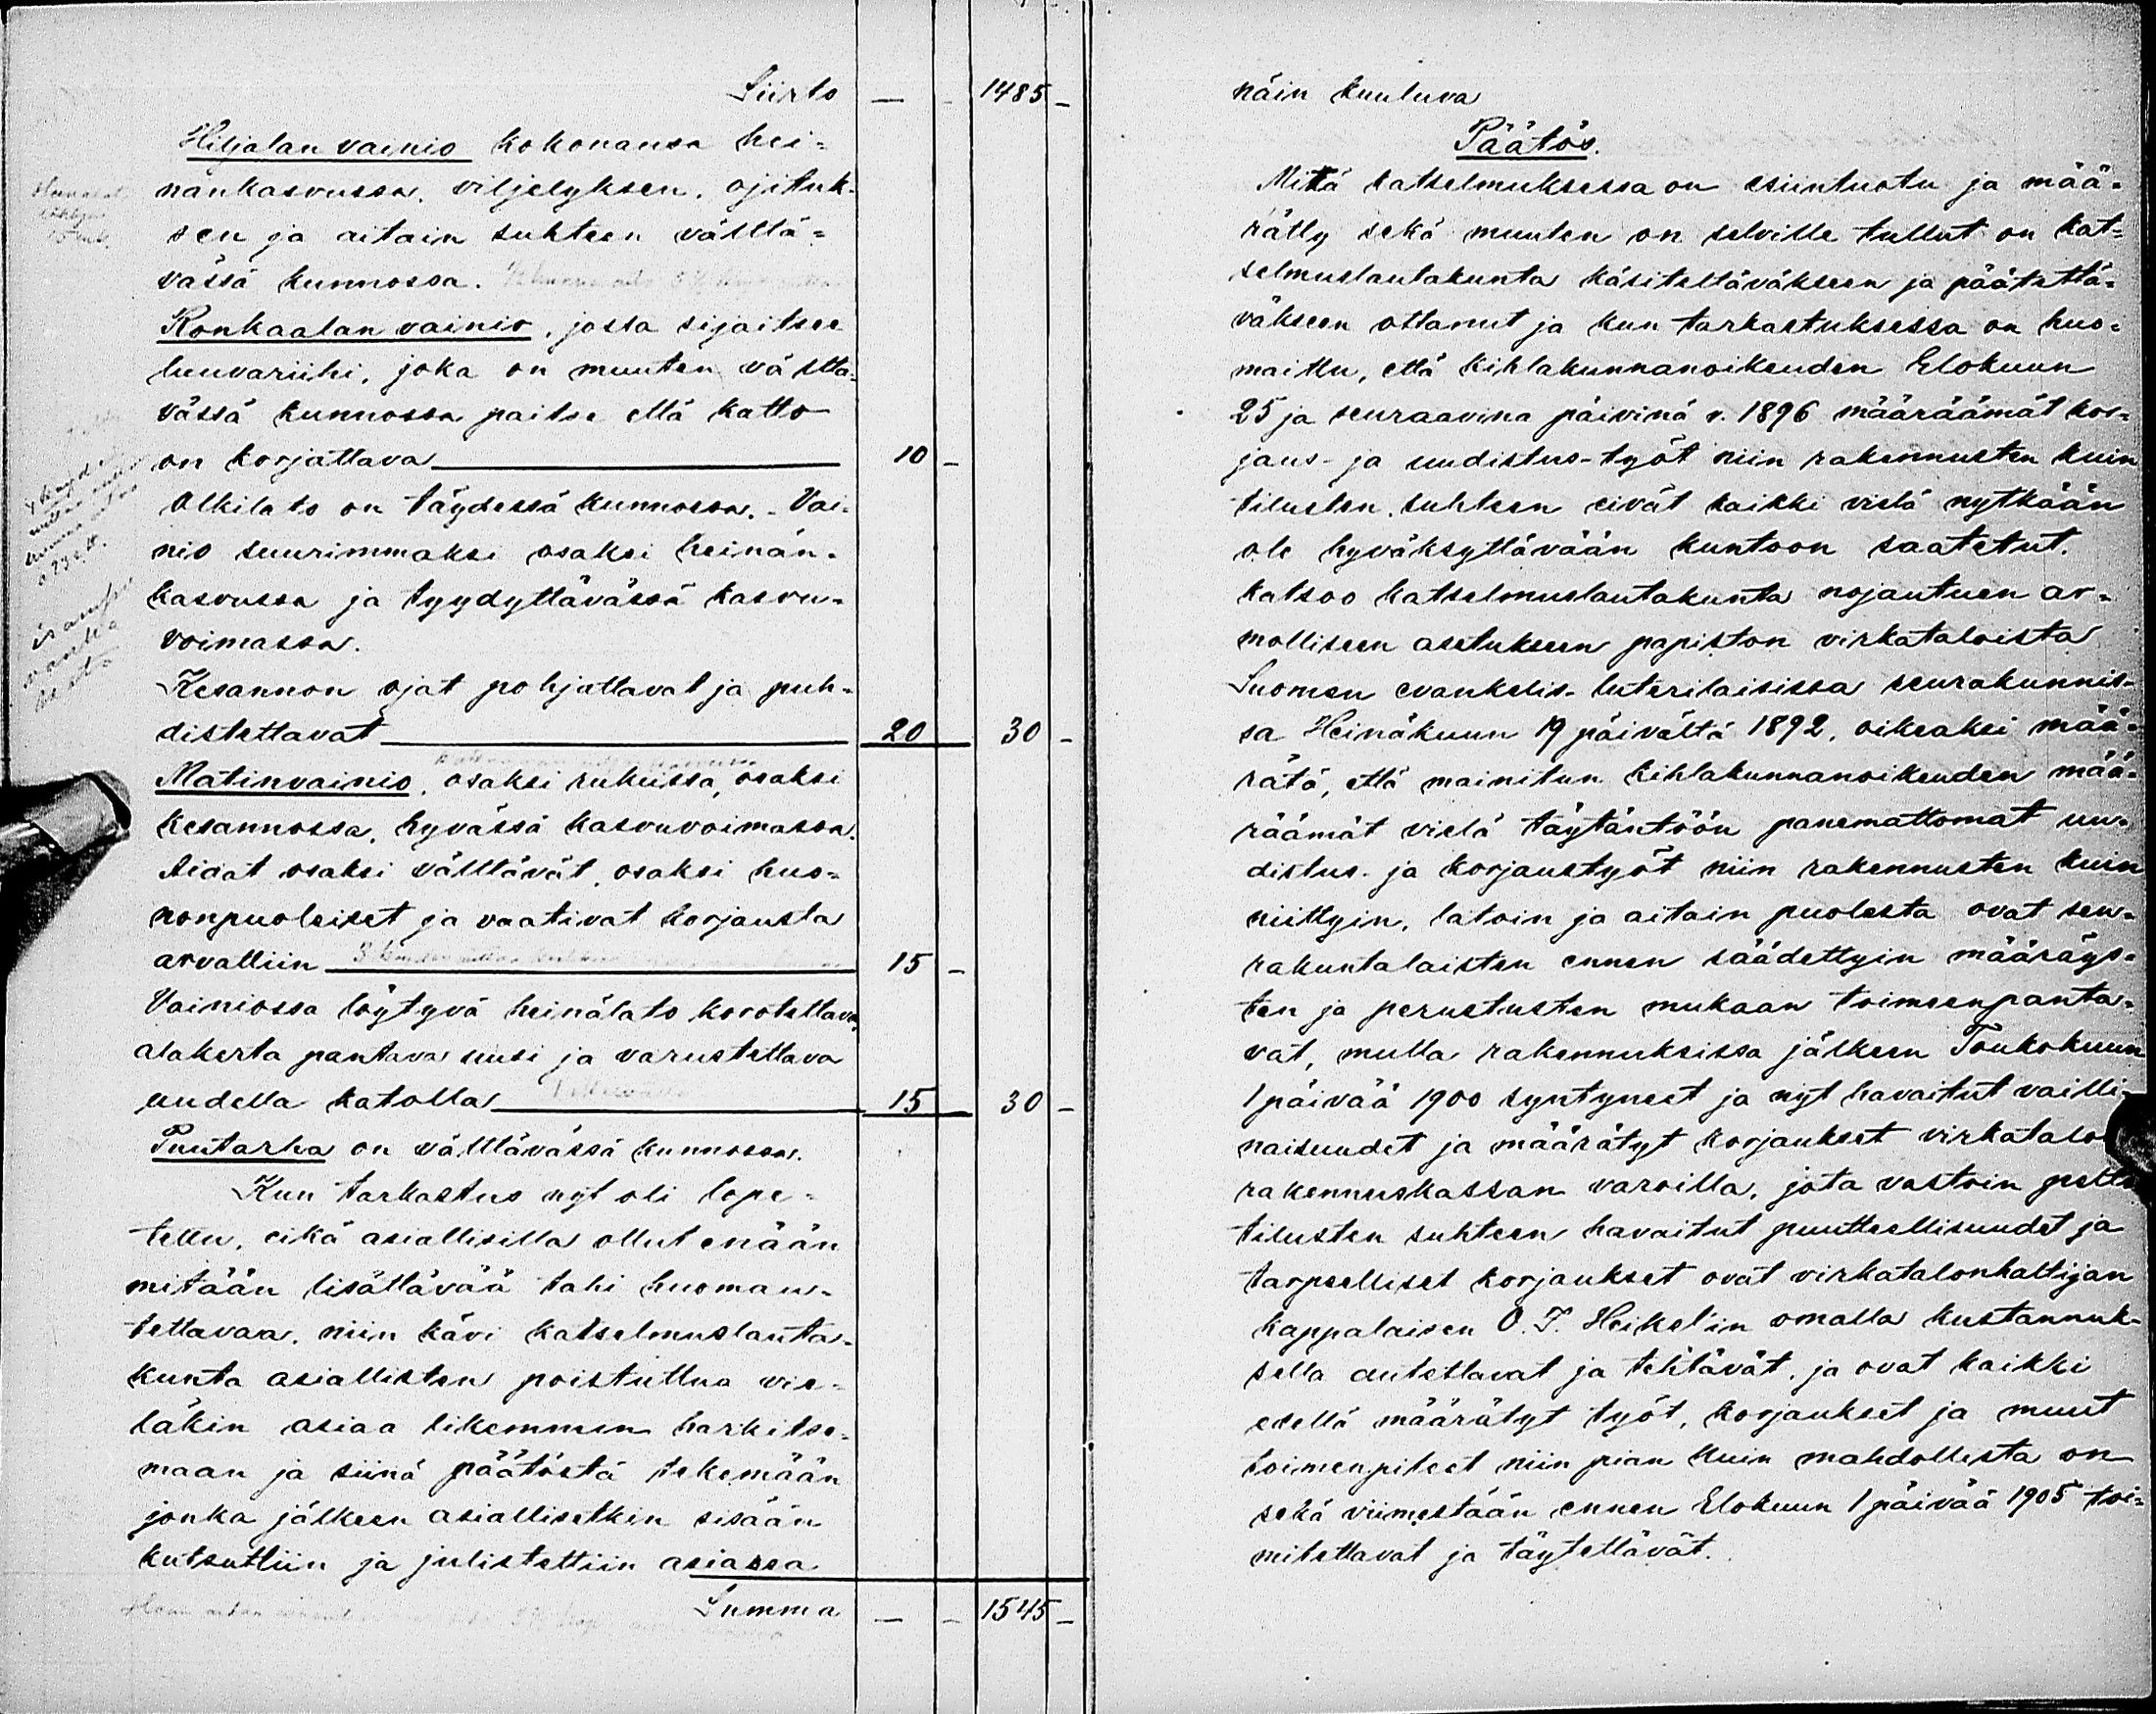 Siirto — - 1485 -
Hiljalan vainio kokonansa hei=
nänkasvussa, viljelyksen, ojituk=
sen ja aitain suhteen välttä=
vässä kunnossa.
Konkaalan vainio, jossa sijaitsee
luuvariihi, joka on muuten vältta=
vässä kunnossa paitse että katto
on korjattava 10 -
Olkilato on täydessä kunnossa. - Vai=
nio suurimmaksi osaksi heinän=
kasvussa ja tyydyttävässä kasvu=
voimassa.
Kesannon ojat pohjattavat ja puh=
distettavat 20 30 -
Matinvainio, osaksi rukiissa, osaksi
kesannossa, hyvässä kasvuvoimassa.
Aidat osaksi välttävät, osaksi huo=
nonpuoleiset ja vaativat korjausta
arvalliin 15 -
Vainiossa löytyvä heinälato korotettava,
alakerta pantava uusi ja varustettava
uudella katolla 15 30 -
Puutarha on välttävässä kunnossa.
Kun tarkastus nyt oli lope=
tettu, eikä asiallisilla ollut enään
mitään lisättävää tahi huomau=
tettavaa, niin kävi katselmuslauta=
kunta asiallisten poistuttua vie=
läkin asiaa likemmin harkitse=
maan ja siinä päätöstä tekemään
jonka jälkeen asiallisetkin sisään
kutsuttiin ja julistettiin asiassa
Summa — - 1545 -
näin kuuluva
Päätös.
Mitä katselmuksessa on esiintuotu ja mää=
rätty sekä muuten on selville tullut on kat=
selmuslautakunta käsiteltäväkseen ja päätettä=
väkseen ottanut ja kun tarkastuksessa on huo=
maittu, että kihlakunnanoikeuden Elokuun
25 ja seuraavina päivinä v. 1896 määräämät kor=
jaus- ja uudistus-työt niin rakennusten kuin
tilusten suhteen eivät kaikki vielä nytkään
ole hyväksyttävään kuntoon saatetut,
katsoo katselmuslautakunta nojautuen ar=
molliseen asetukseen papiston virkataloista
Suomen evankelis-luterilaisissa seurakunnis=
sa Heinäkuun 19 päivältä 1892, oikeaksi mää=
rätä, että mainitun kihlakunnanoikeuden mää=
räämät vielä täytäntöön panemattomat uu=
distus- ja korjaustyöt niin rakennusten kuin
niittyin, latoin ja aitain puolesta ovat seu=
rakuntalaisten ennen säädettyin määräys=
ten ja perustusten mukaan toimeenpanta=
vat, mutta rakennuksissa jälkeen Toukokuun
1 päivää 1900 syntyneet ja nyt havaitut vailli=
naisuudet ja määrätyt korjaukset virkatalo
rakennuskassan varoilla, jota vastoin pelto
tilusten suhteen havaitut puutteellisuudet ja
tarpeelliset korjaukset ovat virkatalonhaltijan
kappalaisen O. T. Heikel'in omalla kustannuk=
sella autettavat ja tehtävät, ja ovat kaikki
edellä määrätyt työt, korjaukset ja muut
toimenpiteet niin pian kuin mahdollista on
sekä viimestään ennen Elokuun 1 päivää 1905 toi=
mitettavat ja täytettävät.